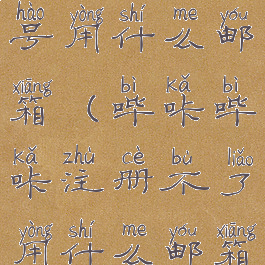 hào yòng shí me yóu
号用什么邮
xiāng bì kǎ bì
箱（哔咔哔
kǎ zhù cè bù liǎo
咔注册不了
yòng shí me yóu xiāng
用什么邮箱